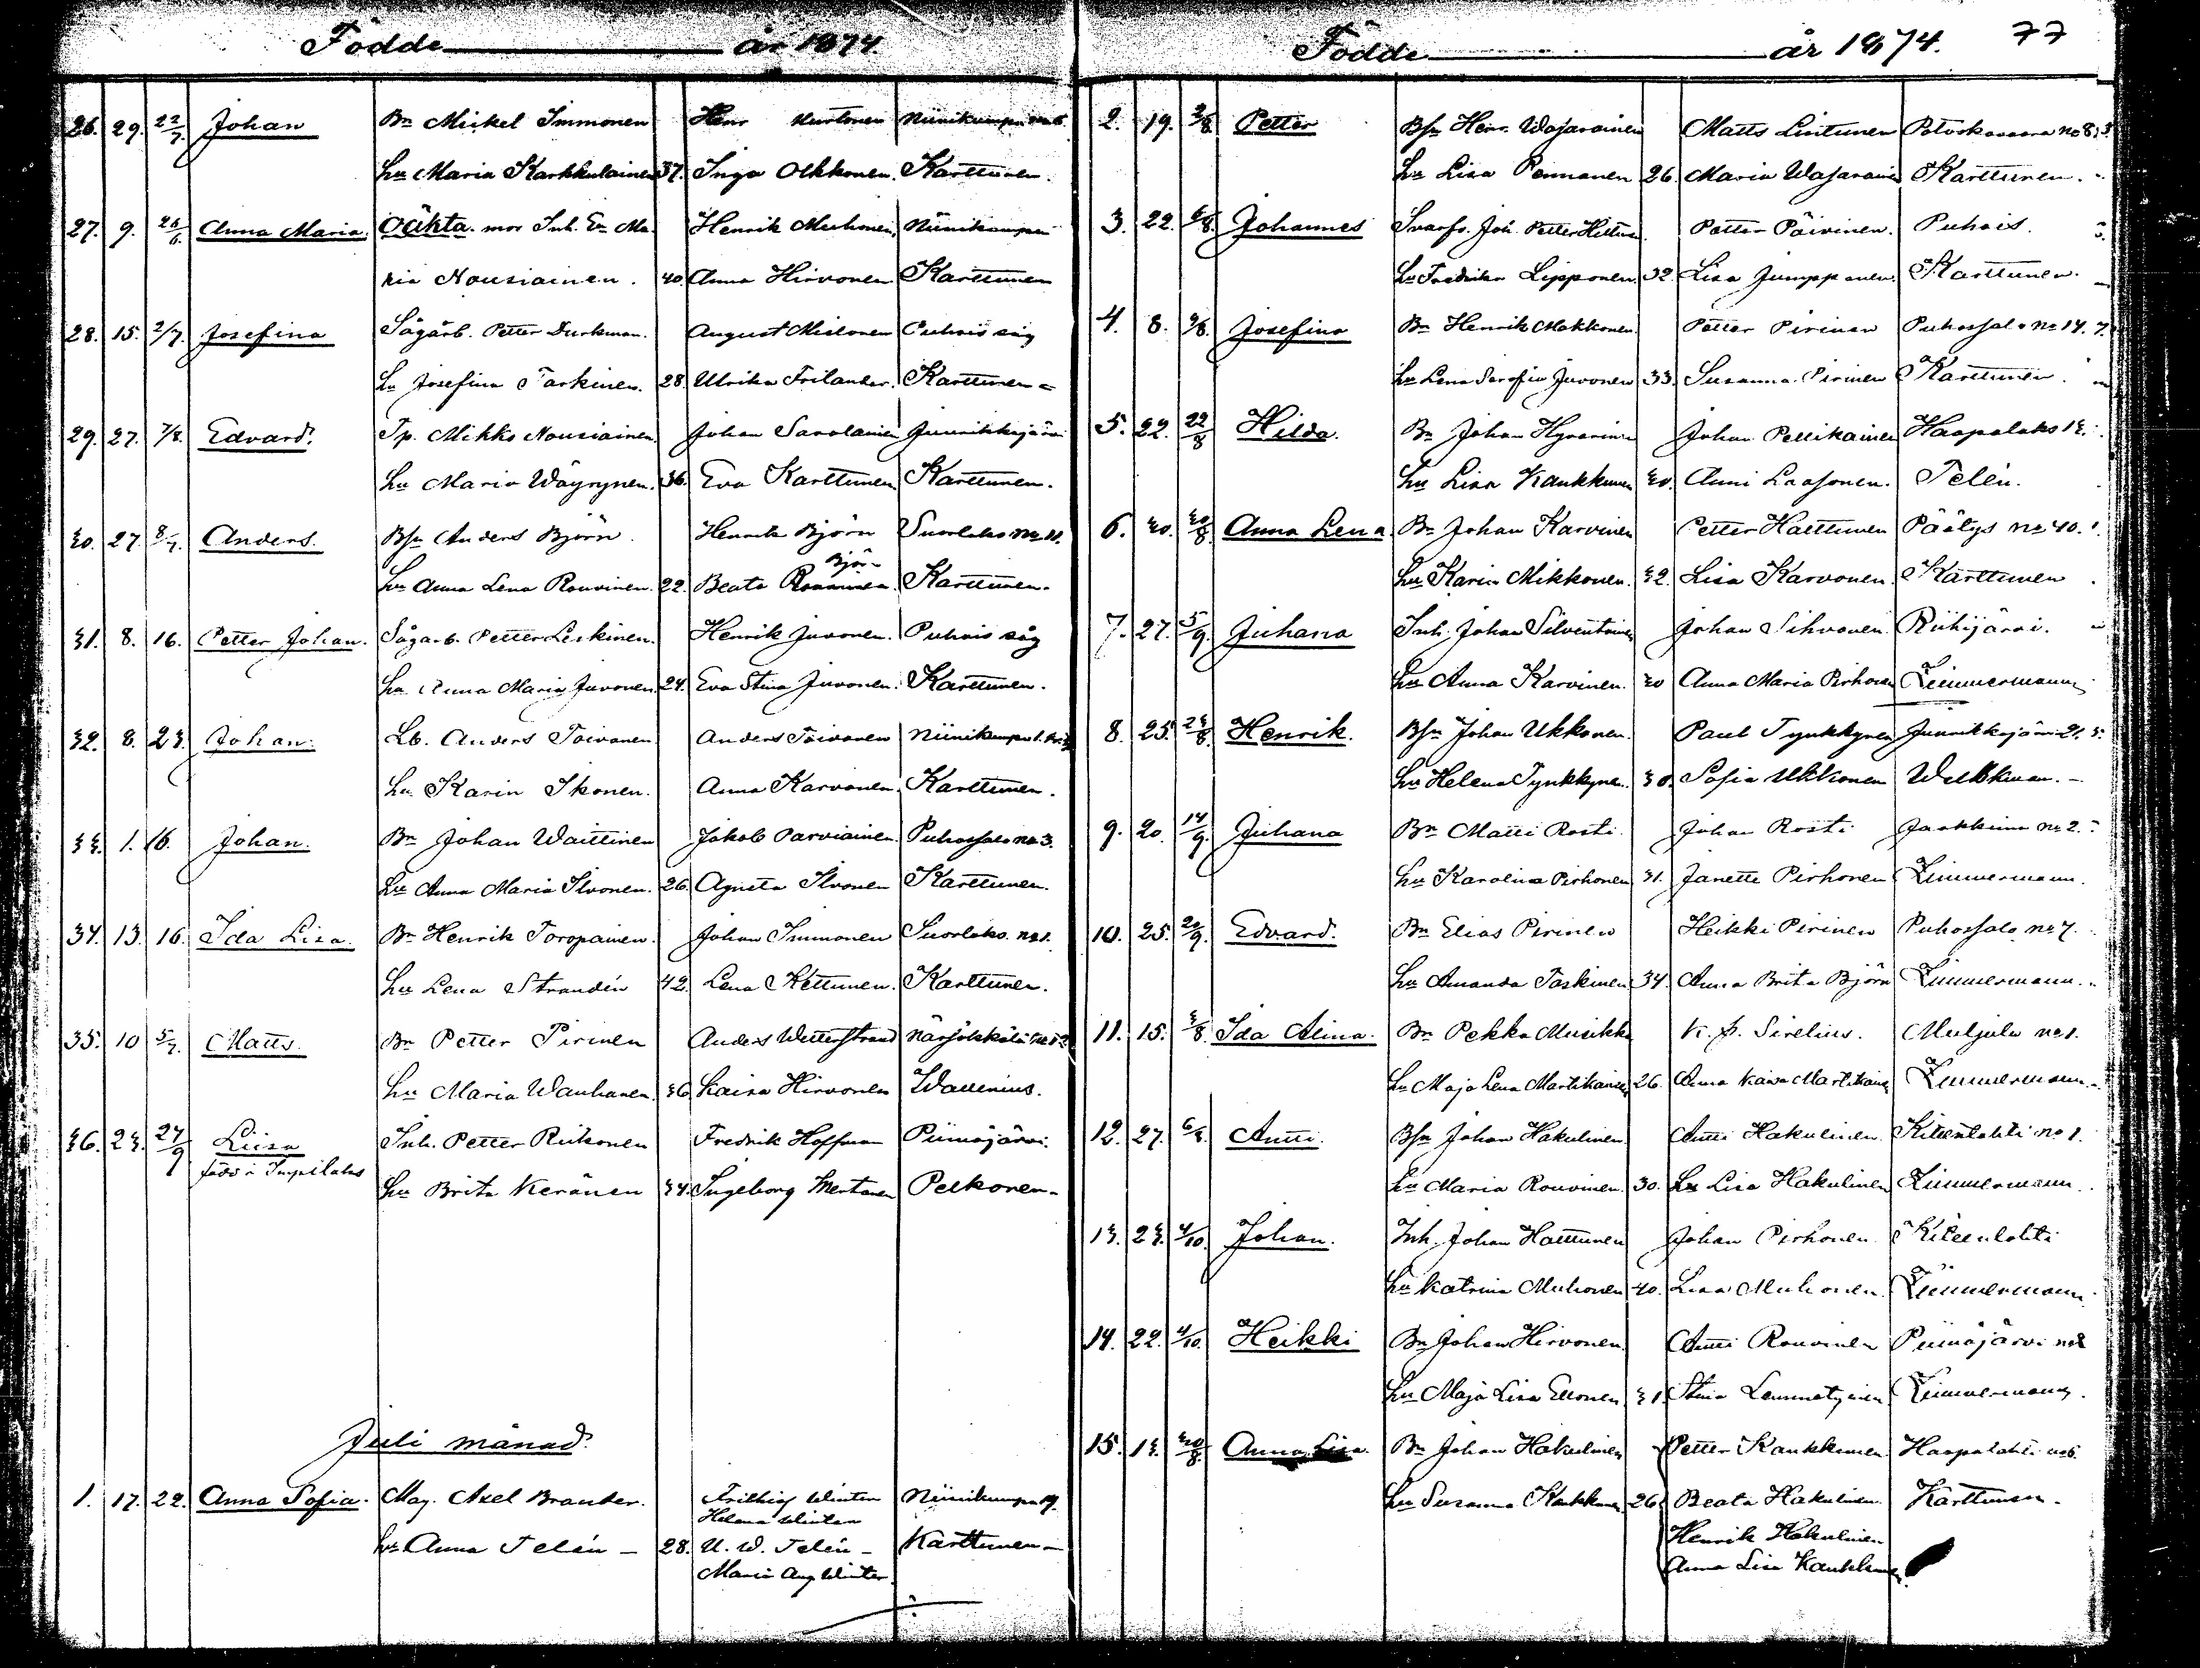 Födde år 1874
26. 29. 22/7. Johan Bn Mickel Immonen Henr Niinikumpu no 6.
hu Maria Karhkulainen 37. Inga Olkkonen. Karttunen.
27. 9. 26/6. Anna Maria. Oäkta. mor Inh. En Ma- Henrik Muhonen Niinikumpu
ria Nousiainen. 40. Anna Hirvonen Karttunen
28. 15. 2/7. Josefina Sågarb. Petter August Puhois såg
hu Josefina Tarkinen. 28. Ulrika Frilander. Karttunen
29. 27. 7/8. Edvard. Tp. Mikko Nousiainen. Johan Savolainen Juurikkajärvi
hu Maria Wäyrynen. 36. Eva Karttunen Karttunen.
30. 27. 8/7. Anders. Bsn Anders Björn. Henrik Björn Suorlaks no 11.
Björn
hu Anna Lena Rouvinen. 22. Beata Karttunen.
31. 8. 16. Petter Johan. Sågarb. Petter Leskinen. Henrik Juvonen. Puhois såg
hu Anna Maria Juvonen. 24. Eva Stina Juvonen. Karttunen.
32. 8. 23. Johan. Lb. Anders Toivanen Anders Toivanen Niinikumpu
hu Karin Ikonen. Anna Karvonen. Karttunen.
33. 1. 16. Johan. Bn Johan Waittinen Jakob Parviainen. Puhossalo no 3.
hu Anna Maria Ilvonen. 26. Agneta Ilvonen Karttunen.
34. 13. 16. Ida Lisa. Bn Henrik Toropainen. Johan Immonen Suorlaks. no 1.
hu Lena Strandén 42. Lena Kettunen. Karttunen.
35. 10 5/7. Matts. Bn Petter Pirinen Anders Wetterstrand Närsäkkälä
hu Maria Wauhanen. 36 Kaisa Hirvonen Wallenius.
36. 23. 27/9 Liisa Inh. Petter Riikonen Fredrik Hoffman Piimäjärvi.
född i Impilaks
hu Brita Keränen 34. Ingeborg Mertanen Pelkonen-
Juli månad.
1. 17. 22. Anna Sofia. Mag. Axel Brander. Frithiof Winter Niinikumpu 19.
Helena Winter
hu Anna Telén - 28. U. W. Telén - Karttunen -
Maria Aug Winter.
Födde år 1874. 77
2. 19. 2/8. Petter Bsn Henr. Wajavainen Matts Lintunen Potoskavaara no 8.
hu Lisa Pennanen 26. Maria Wajavainen Karttunen.
3. 22. 6/8. Johannes Svarfv. Joh. Petter Petter Päivinen. Puhois.
hu Fredrika Lipponen. 32. Lisa Jumppanen. Karttunen.
4. 8. 9/8. Josefina Bn Henrik Makkonen. Petter Pirinen Puhossalo no 14.
hu Lena Serafia Juvonen 33. Susanna Pirinen Karttunen.
5. 22. 22/8 Hilda. Bn Johan Hyvärinen Johan Pellikainen Haapalaks 12.
hu Lisa Kaukkunen 30. Anni Laasonen. Telén.
6. 30. 30/8. Anna Lena Bn Johan Karvinen Petter Hattunen Päätys no 40.
hu Karin Mikkonen. 32. Lisa Karvonen. Karttunen
7. 27. 5/9. Juhana Inh. Johan Silventoinen Johan Sihvonen. Riihijärvi.
hu Anna Karvinen. 30 Anna Maria Pirhonen Zimmermann.
8. 25. 23/8. Henrik. Bsn Johan Ukkonen. Paul Tynkkynen Juurikkajärvi 21.
hu Helena Tynkkynen. 30. Sofia Ukkonen
9. 20. 14/9. Juhana Bn Matti Rosti. Johan Rosti Jaakkima no 2.
hu Karolina Pirhonen 31. Janette Pirhonen Zimmermann.
10. 25. 22/9. Edvard. Bn Elias Pirinen Heikki Pirinen Puhossalo no 7.
hu Amanda Taskinen 34. Anna Brita Björn Zimmermann.
11. 15. 3/8. Ida Alina. Bn Pekka Musikka K. J. Sirelius. Muljula no 1.
hu Maja Lena Martikainen 26. Anna Kaisa Martikainen Zimmermann.
12. 27. Antti. Bsn Johan Hakulinen. Antti Hakulinen. Kiteenlahti no 1.
hu Maria Rouvinen. 30. hu Lisa Hakulinen Zimmermann.
13. 23. 4/10. Johan. Inh. Johan Hattunen Johan Pirhonen. Kiteenlahti
hu Katrina Muhonen 40. Lisa Muhonen. Zimmermann.
14. 22. 4/10. Heikki Bn Johan Hirvonen. Antti Rouvinen Piimäjärvi no 2
hu Maja Lisa Ellonen 31. Stina Lemmetyinen Zimmermann.
15. 13. 30/8. Anna Lisa. Bn Johan Hakulinen Petter Kaukkunen Haapalahti no 6.
hu Susanna Kaukkunen 26. Beata Hakulinen. Karttunen.
Henrik Hakulinen
Anna Lisa Kaukkunen.